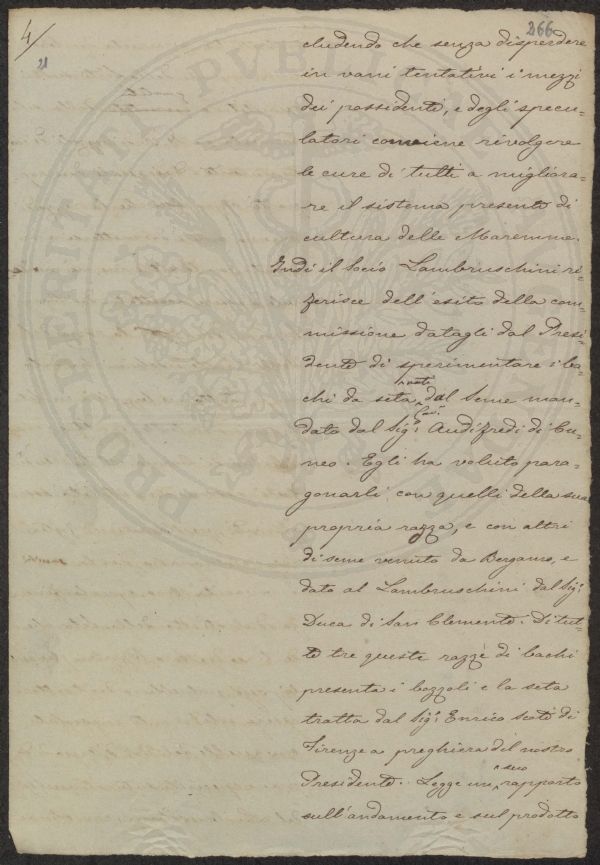 4/
21
266
cludendo che senza disperdere
in vani tentativi i mezzi
dei possidenti, e degli specu-
latori conviene rivolgere
le cure di tutti a migliora-
re il sistema presente di
cultura delle Maremme.
Indi il Socio Lambruschini ri-
ferisce dell'esito della com-
missione datagli dal Presi-
dente di sperimentare i ba-
chi da seta nati dal seme man-
dato dal Sigr. Cav. Audifredi di Cu-
neo. Egli ha voluto para-
gonarli con quelli della sua
propria razza, e con altri
di seme venuto da Bergamo, e
dato al Lambruschini dal Sigr.
Duca di San Clemente. Di tut-
te tre queste razze di bachi
presenta i bozzoli e la seta
tratta dal Sigr. Enrico Scoti di
Firenze a preghiera del nostro
Presidente. Legge un suo rapporto
sull'andamento e sul prodotto
PROSPERITATI PUBLICAE